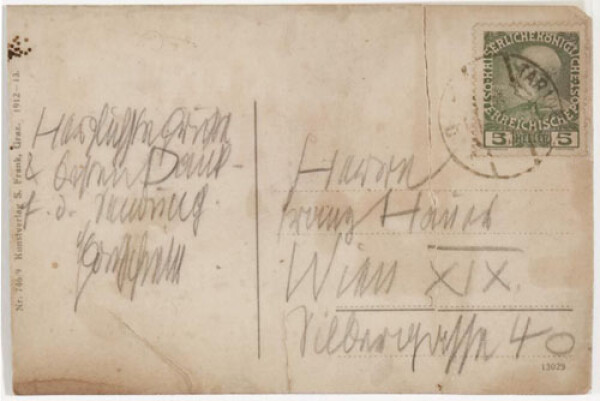 Nr. 746/9 Kunstverlag S. Frank, Graz. 1912-13.
Herzlichste Grüße
& besten Dank
f. d. Sendung.
KAISERLICHE KÖNIGLICHE
ÖSTERREICHISCHE POST
5 HELLER 5
TARV
Herrn
Franz Hauer
Wien XIX.
Silbergasse 40
13029